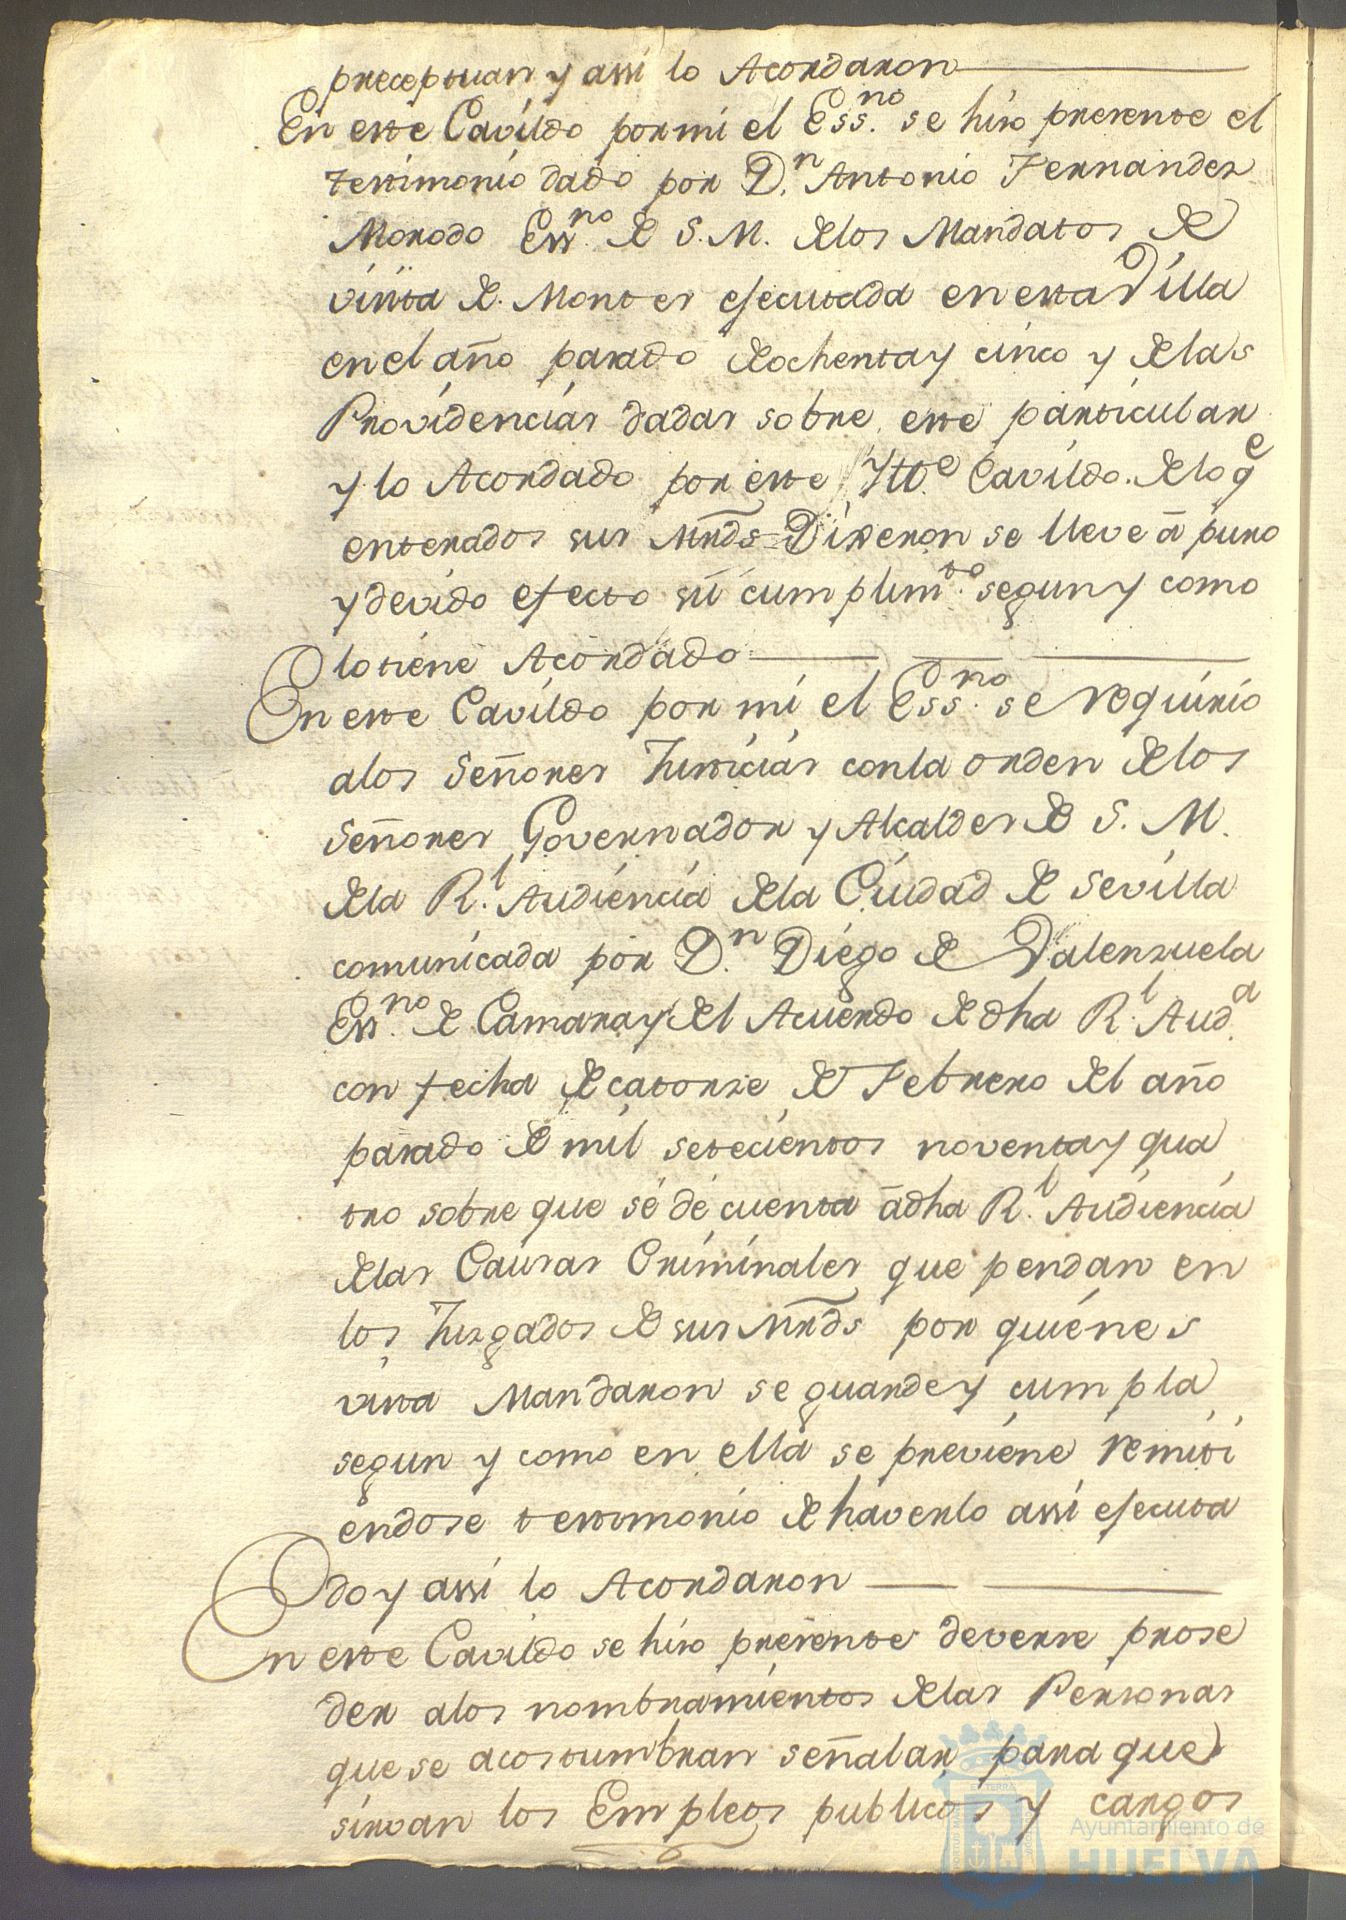 preceptuan y assi lo Acordaron
En este Cavildo por mi el Ess.no se hiso presente el
testimonio dado por D.n Antonio Fernandez
Morodo Ess.no de S. M. delos Mandatos de
visita de Montes ejecutada en esta Villa
en el año pasado de ochenta y cinco y delas
Providencias dadas sobre este particular
y lo Acordado por este Ytt.e Cavildo. delo qe
enterados sus Mrds Dixeron se lleve á puro
y devido efecto sú cumplim.to segun y como
lo tiene Acordado
En este Cavildo por mi el Ess.no se requirio
alos Señores Justicias con la orden delos
Señores Governador y Alcaldes de S. M.
dela R.l Audiencia dela Ciudad de Sevilla
comunicada por D.n Diego de Valenzuela
Ess.no de Camara y del Acuerdo de dha R.l Aud.a
con fecha de catorze de Febrero del año
pasado de mil setecientos noventa y qua
tro sobre que sé dé cuenta á dha R.l Audiencia
delas Causas Criminales que pendan en
los Juzgados de sus Mrds por quiénes
vista Mandaron se guarde y cumpla
segun y como en ella se previene remiti
endose testimonio de haverlo assi ejecuta
do y assi lo Acordaron
En este Cavildo se hiso presente deverse prose
der alos nombramientos delas Personas
que se acostumbran señalar para que
sirvan los Empleos publicos y cargos
Ayuntamiento de
HUELVA